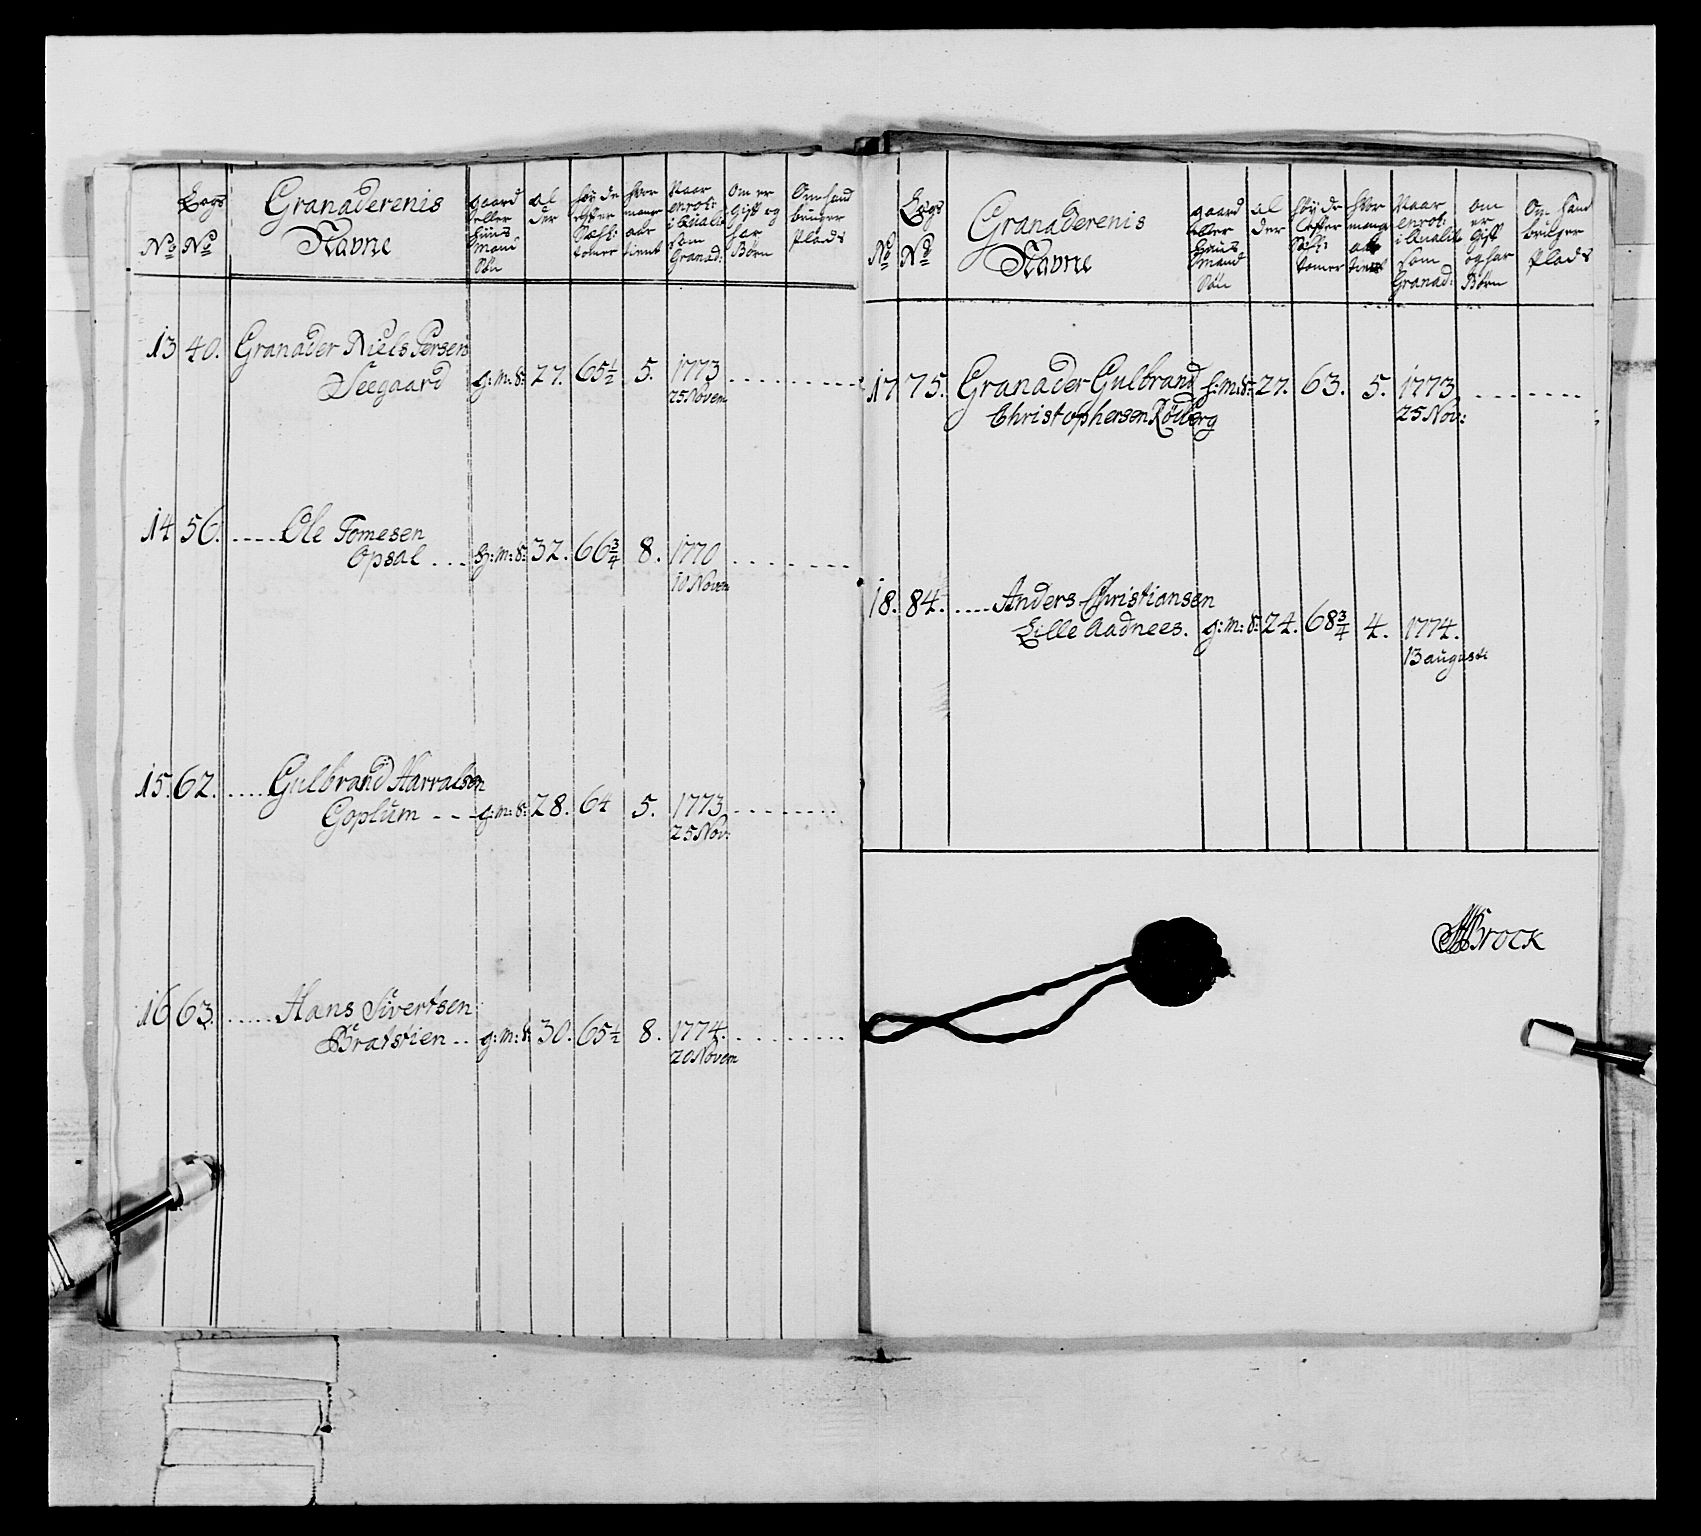 No
Legs No
Granaderenis
Navne
gaard
eller
Huus
Mans
Søn
al
der
Høyde
efter
Sælh:
tomer
Hvor
mange
aar
tient
Naar
enrot:
i Qualit:
som
Granad:
Om er
Gift og
har
Børn
Om hand
bruger
Plads
13 40. Granader Niels Persen
Seegaard g:m:s: 27. 65½ 5. 1773
25 Novem
14 56. Ole Tomesen
Opsal h:m:s: 32. 66¾ 8. 1770
10 Novem
15. 62. Gulbrand Harralsen
Goplum g:m:s: 28. 64 5. 1773
25 Nov:
16 63. Hans Sivertsen
Bratstien g:m:s: 30. 65½ 8. 1774.
20 Novem
No
Legs
No
Granaderenis
Navne
gaard
eller
Huus
mand
Søn
al
der
Høyde
efter
Sælh:
tomer
Hvor
mange
aar
tient
Naar
enrot:
i Qualit:
som
Granad:
om
er
Gift
og har
Børn
Om hand
bruger
Plads
17 75. Granader Gulbrand h:m:s: 27. 63. 5. 1773
Christophersen 25 Nov:
18. 84. Anders Christiansen
Lille Aadnees. g:m:s: 24. 68¾ 4. 1774.
13 augusti
Brock